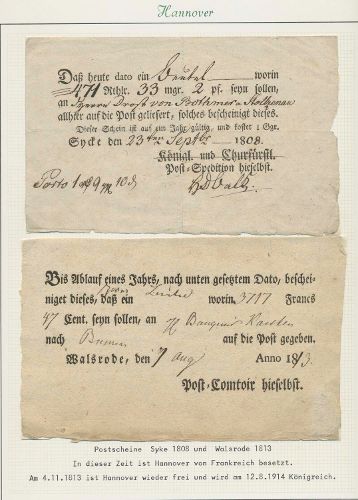 Hannover
Daß heute dato ein Beutel worin
471 Rthlr. 33 mgr. 2 pf. seyn sollen,
an Herrn Drost von Bothmer
allhier auf die Post geliefert, solches bescheiniget dieses.
Dieser Schein ist auf ein Jahr gültig, und kostet 1 Ggr.
Syke den 23ten Septbr 1808.
Königl. und Churfürstl.
Post-Spedition hieselbst.
Porto 1
Bis Ablauf eines Jahrs, nach unten gesetztem Dato, beschei-
niget dieses, daß ein Beutel worin 3717 Francs
47 Cent. seyn sollen, an H Banquier
nach Bremen auf die Post gegeben.
Walsrode, den 7 Aug Anno 1813.
Post-Comtoir hieselbst.
Postscheine Syke 1808 und Walsrode 1813
In dieser Zeit ist Hannover von Frankreich besetzt.
Am 4.11.1813 ist Hannover wieder frei und wird am 12.8.1914 Königreich.